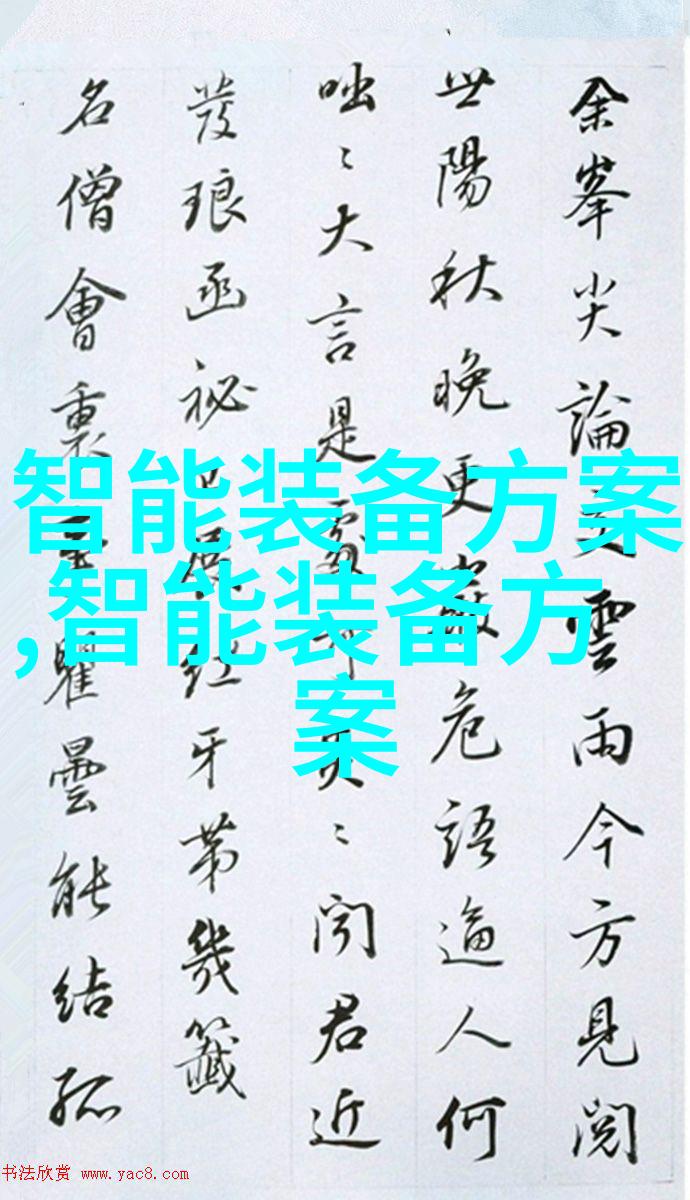 余峯尖論雲雨今方見閲
世陽秋晚更嚴危語逼人何
咄〻大言是〻聞君近
發琅函祕紅牙第幾籤
名僧會裏瞿曇能結孤
智能装备方案
,智能装备方
案
书法欣赏 www.yac8.com